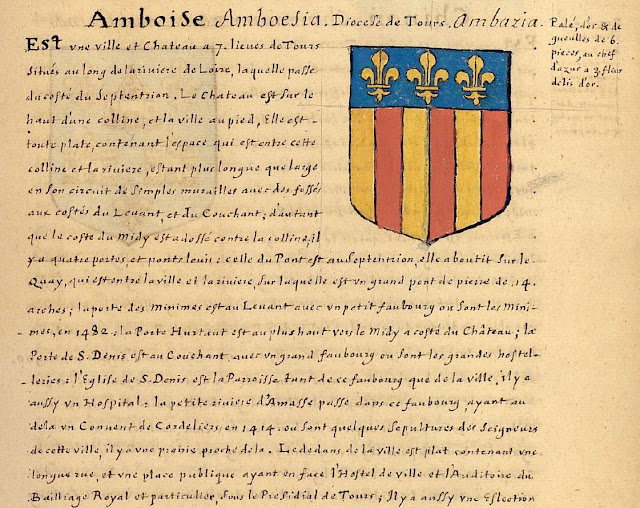 Amboise Amboesia. Diocese de Tours. Ambazia.
Palé, d'or & de
gueulles de 6.
pieces, au chef
d'azur a 3. fleurs
de lis d'or.
Est vne ville et Chateau a 7. lieues de Tours
situés au long de la riviere de Loire, laquelle passe
du costé du Septentrion. Le Chateau est sur le
haut d'une colline, et la ville au pied, Elle est
toute plate, contenant l'espace qui est entre cette
colline et la riviere, estant plus longue que large
en son circuit de simples murailles avec des fossés
aux costés du Levant, et du Couchant; d'autant
que le costé du Midy est adossé contre la colline, il
y a quatre portes et ponts levis: celle du Pont est au Septentrion, elle aboutit sur le
Quay, qui est entre la ville et la riviere, sur laquelle est vn grand pont de pierre de 14.
arches; la porte des Minimes est au Levant avec vn petit faubourg ou sont les Mini-
mes, en 1482: la Porte Hurtaut est au plus haut vers le Midy a costé du Château; la
Porte de S. Denis est au Couchant, avec vn grand faubourg ou sont les grandes hostel-
leries: l'Eglise de S. Denis est la Parroisse tant de ce faubourg que de la ville, il y a
aussy vn Hospital: la petite riviere d'Amasse passe dans ce faubourg, ayant au
dela vn Convent de Cordeliers en 1414. ou sont quelques sepultures des Seigneurs
de cette ville, il y a vne prairie proche de la. Le dedans de la ville est plat contenant vne
longue rue, et vne place publique ayant en face l'Hostel de ville et l'Auditoire du
Bailliage Royal et particulier, sous le Presidial de Tours; Il y a aussy vne Eslection